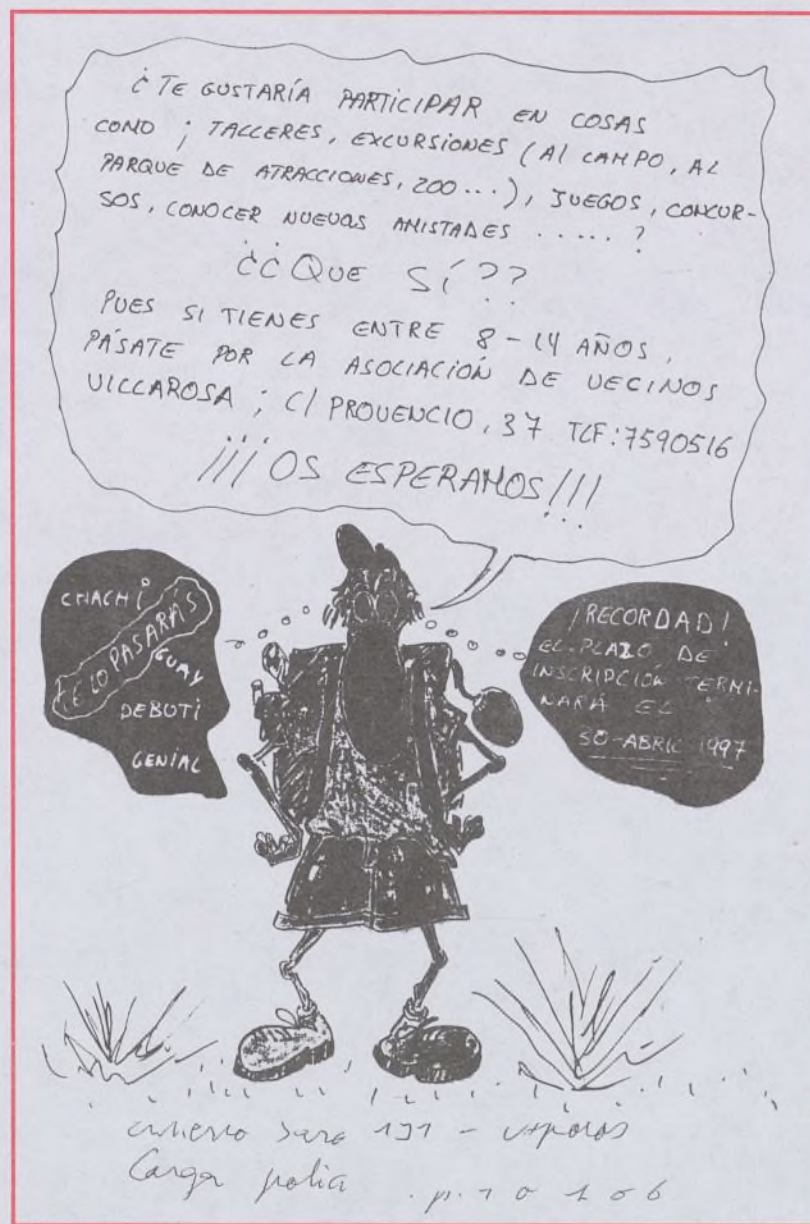 ¿TE GUSTARÍA PARTICIPAR EN COSAS
COMO ; TALLERES, EXCURSIONES (Al CAMPO, AL
PARQUE DE ATRACCIONES, ZOO...), JUEGOS, CONCUR-
SOS, CONOCER NUEVAS AMISTADES ..... ?
¿¿QUE SÍ??
PUES SI TIENES ENTRE 8-14 AÑOS,
PÁSATE POR LA ASOCIACIÓN DE VECINOS
VILLAROSA ; C/ PROVENCIO, 37 TLF: 7590516
¡¡¡OS ESPERAMOS!!!
CHACHi
TE LO PASARÁS
GUAY
DEBUTi
GENIAL
¡RECORDAD!
EL PLAZO DE
INSCRIPCIÓN TERMI-
NARÁ EL
30-ABRIL 1997
Carga